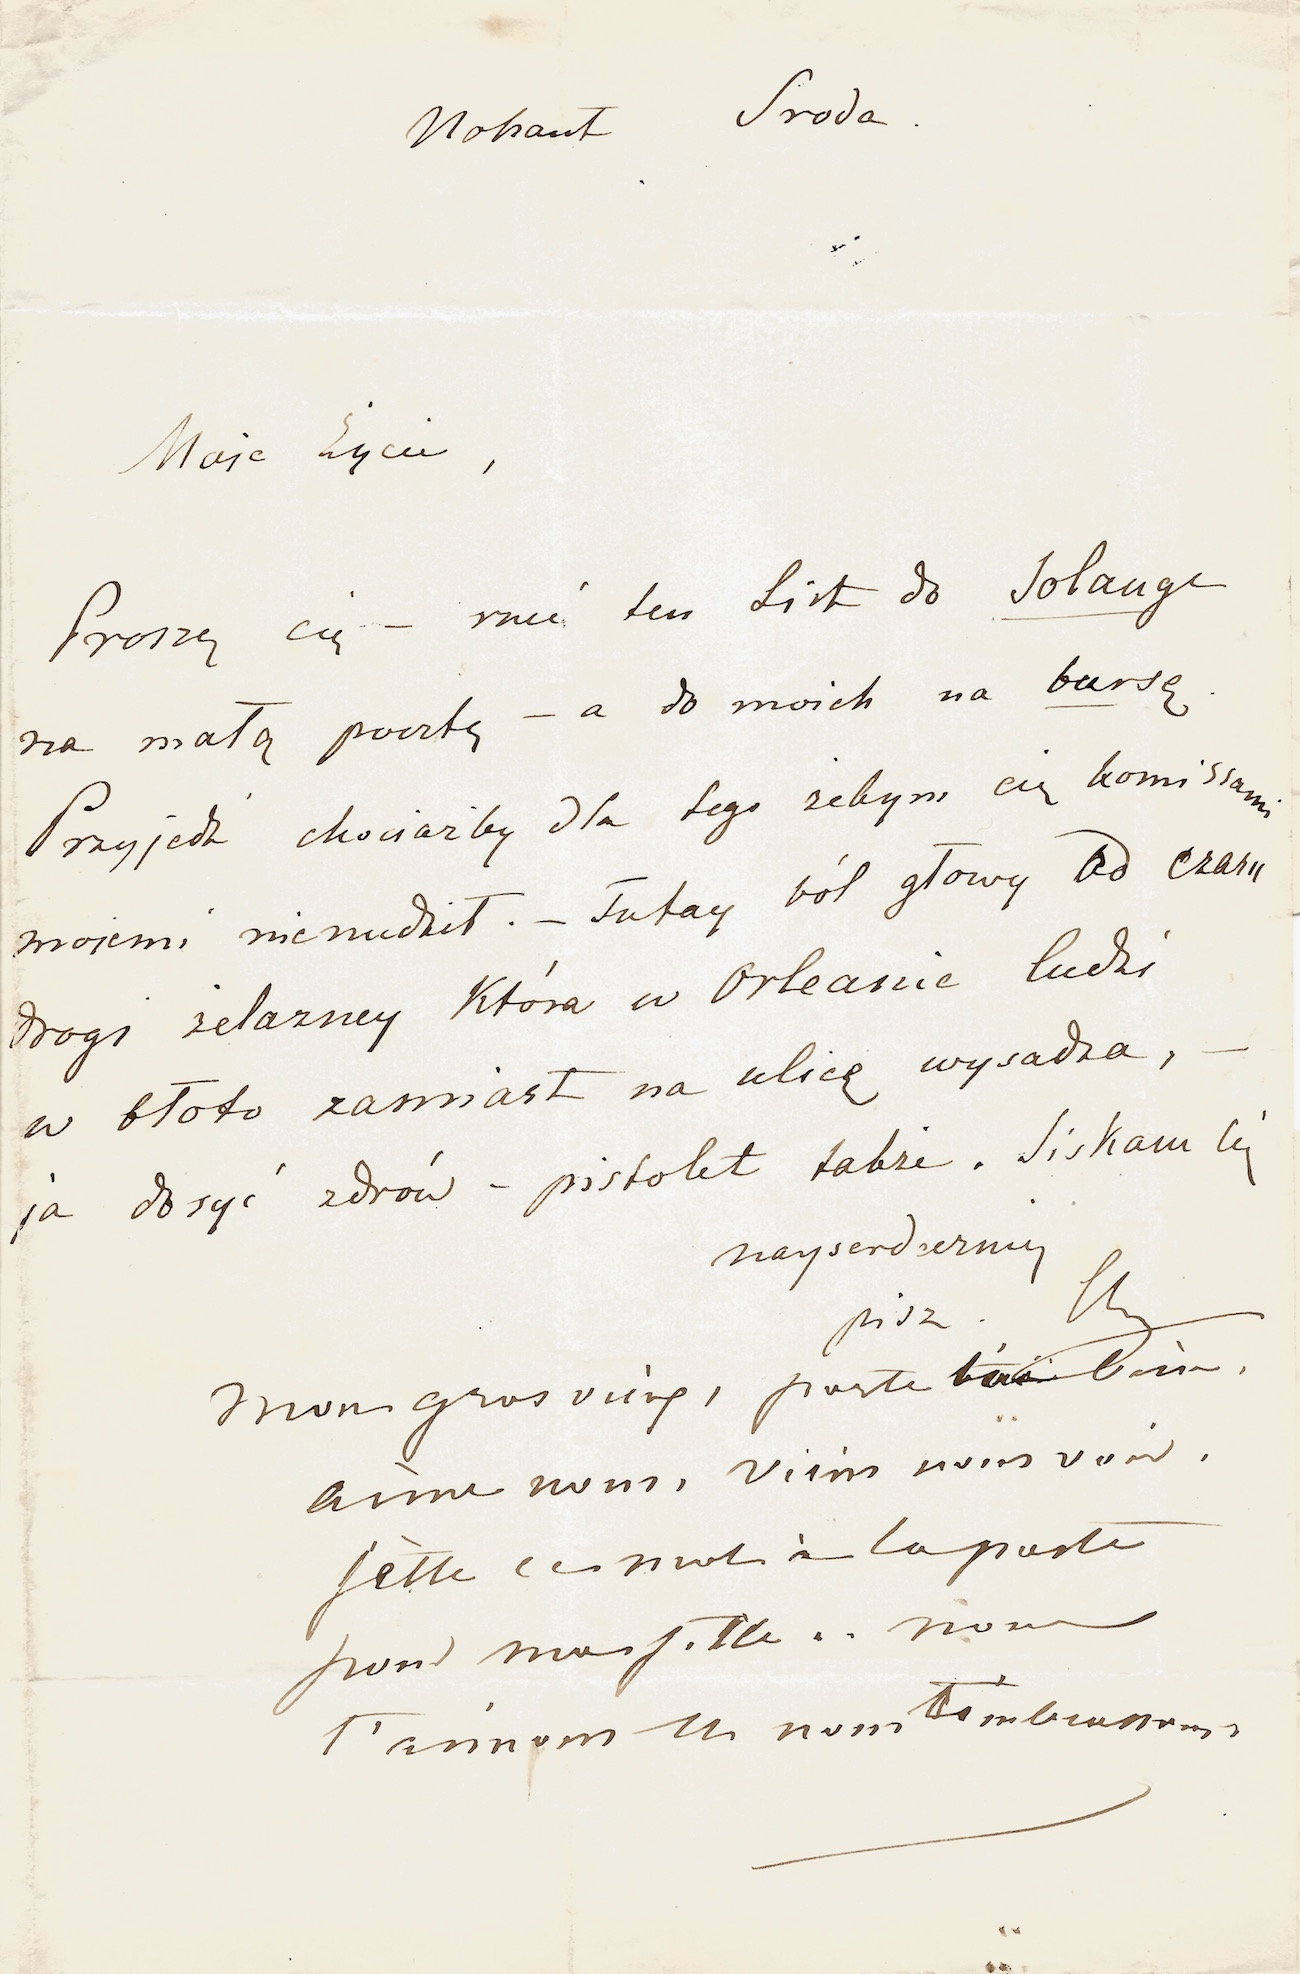 Nohant Sroda.
Moje Życie,
Proszę cię – rzuć ten List do Solange
na małą pocztę – a do moich na bursę.
Przyjedź chociażby dla tego żebym cię komissami
mojemi nienudził. – Tutay ból głowy od czasu
drogi żelazney która w Orleanie ludzi
w błoto zamiast na ulicę wysadza, –
ja dosyć zdrów – pistolet także. Siskam Cię
nayserdeczniey
pisz. Ch
Mon gros vieux, porte toi bien,
aime nous, viens nous voir.
jette ce mot à la poste
pour ma fille.. nous
t'aimons et nous t'embrassons